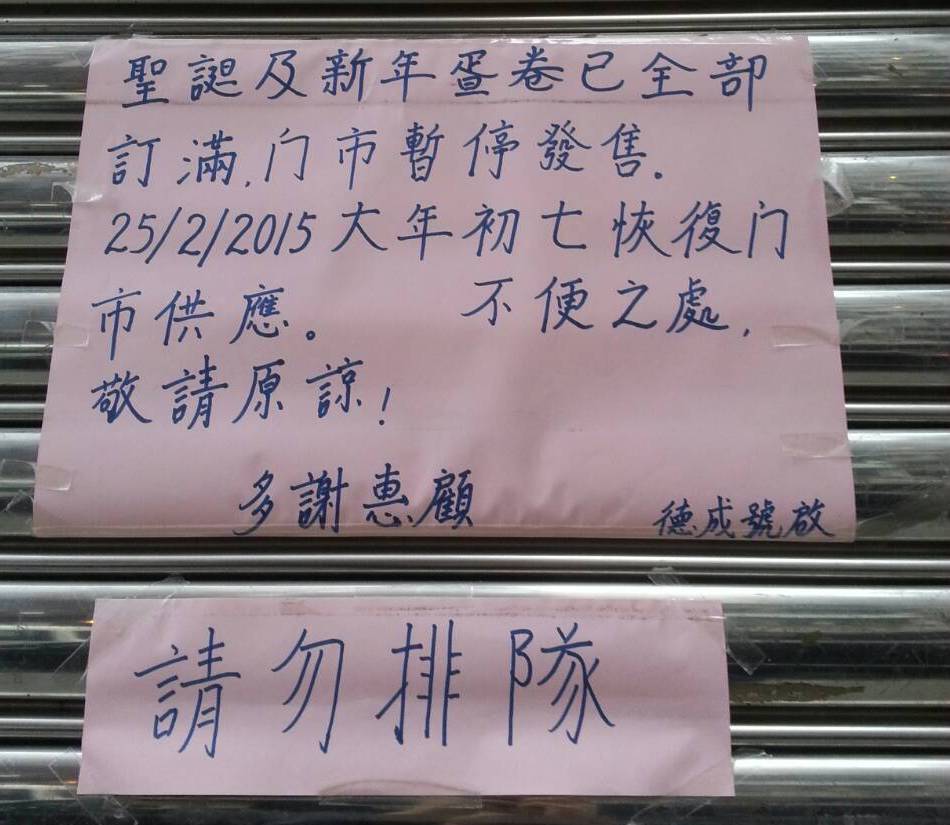 聖誕及新年蛋卷已全部
訂滿,门市暫停發售.
25/2/2015大年初七恢復门
市供應。 不便之處,
敬請原諒!
多謝惠顧 德成號啟
請勿排隊